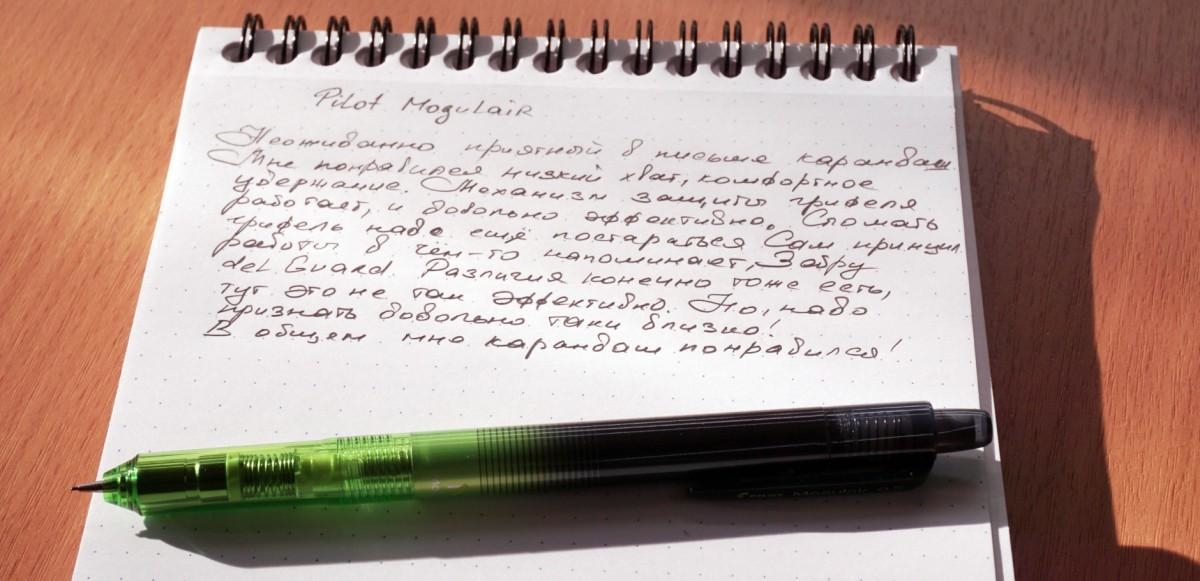 Pilot Mogulair
Неожиданно приятный в письме карандаш
Мне понравился низкий хват, комфортное
удержание. Механизм защиты грифеля
работает, и довольно эффективно. Сломать
грифель надо ещё постараться Сам принцип
работы в чём-то напоминает, Зебру
del Guard. Различия конечно тоже есть,
тут это не так эффективно. Но, надо
признать довольно таки близко!
В общем мне карандаш понравился!
PILOT Mogulair 0.5